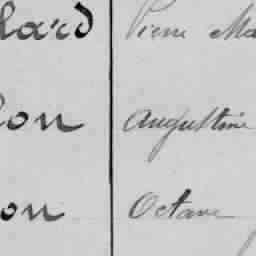 lard Pierre Ma
on Augustine
on Octave